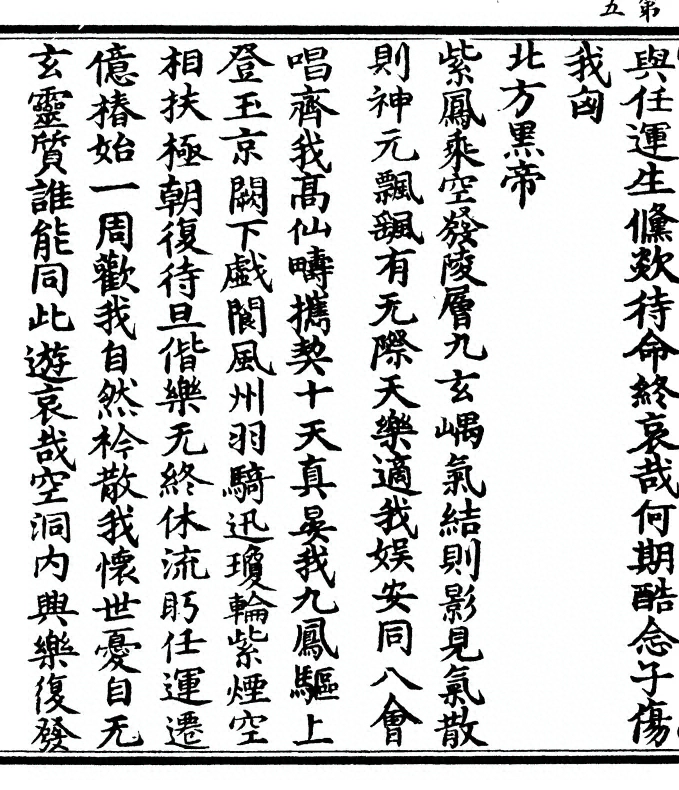 第五
與任運生儵欻待命終哀哉何期酷念子傷
我匈
北方黑帝
紫鳳乘空發陵層九玄嵎氣結則影見氣散
則神元飄颻有无際天樂適我娛安同八會
唱齊我高仙疇攜契十天真晏我九鳳驅上
登玉京闕下戲閬風州羽騎迅瓊輪紫煙空
相扶極朝復待旦偕樂无終休流眄任運遷
億椿始一周歡我自然衿散我懷世憂自无
玄靈質誰能同此遊哀哉空洞內興樂復發